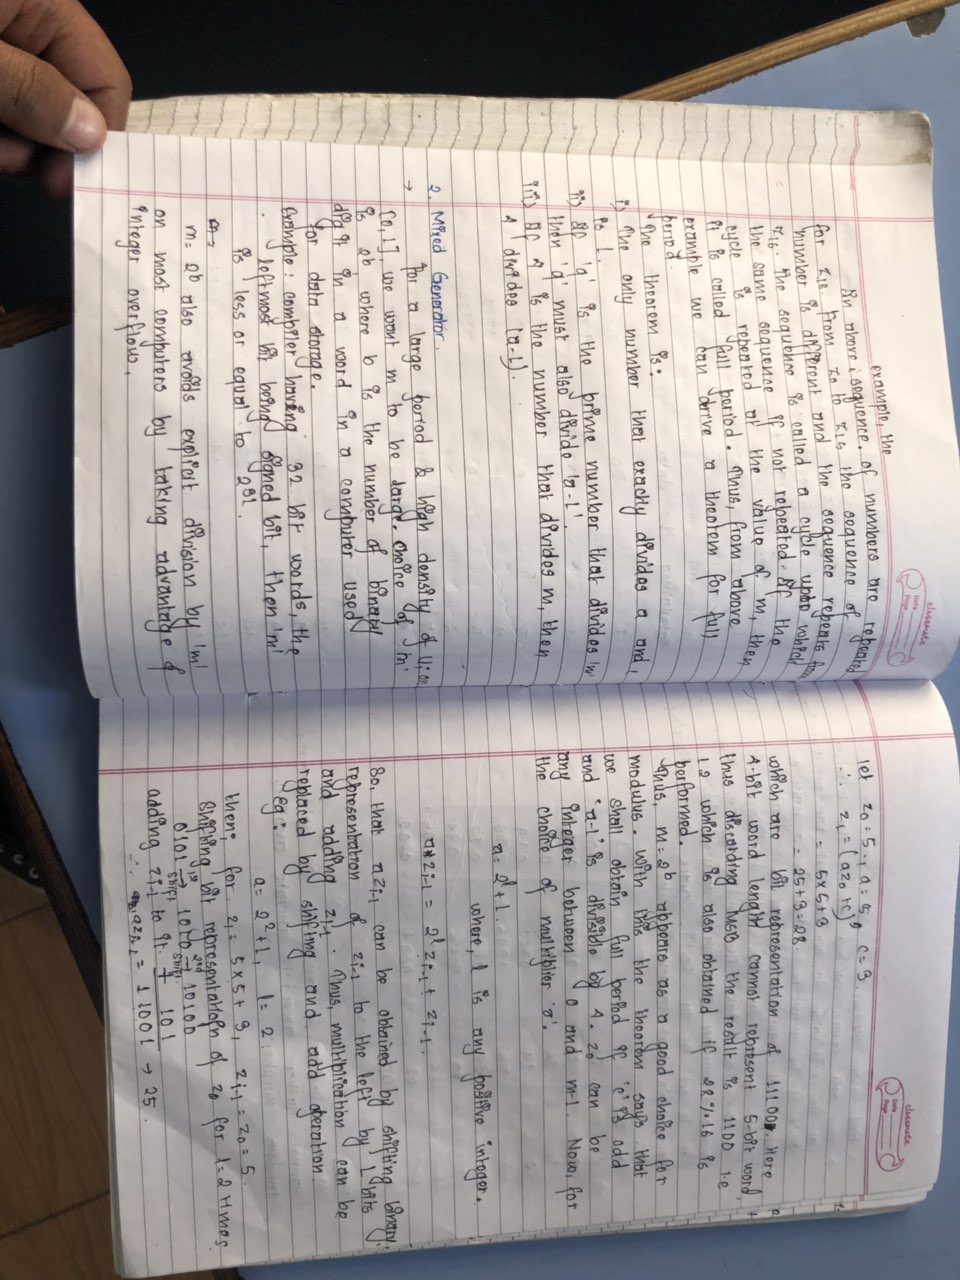 classmate
Date
Page
example, the
In above, sequence, of numbers are repeated
for Z16 from Z0 to Z15 the sequence of
number is different and the sequence repeats from
Z16. The sequence is called a cycle upto which
the same sequence if not repeated. If the
cycle is repeated at the value of 'm, then
it is called full period. Thus, from above
example we can derive a theorem for full
period.
The theorem is:
i) The only number that exactly divides a and
is 1.
ii) If 'q' is the prime number that divides 'm'
then 'q' must also divide 'a-1'.
iii) If 4 is the number that divides m, then
4 divides (a-1).
2. Mixed Generator.
→ For a large period & high density of Ui on
[0,1], we want m to be large. Choice of 'm'
is 2b where b is the number of binary
digit in a word in a computer used
for data storage.
Example: combiler having 32 bit words, the
leftmost bit being signed bit, then 'm'
is less or equal to 231.
→
m = 2b also avoids explicit division by 'm'
on most computers by taking advantage of
integer overflow.
classmate
Date
Page
let Z0 = 5, a = 5, c = 3
∴ Z1 = (aZ0 + c)
= 5x5+3
= 25+3 = 28.
which are bit representation of 11100. Here
4-bit word lenght cannot represent 5-bit word,
thus discarding MSB the result is 1100 i.e
12 which is also obtained if 28%16 is
performed.
Thus, m = 2b appears as a good choice for
modulus. with this the theorem says that
we shall obtain full period if 'c' is odd
and 'a-1' is divisible by 4. Z0 can be
any integer between 0 and m-1. Now, for
the choice of multiplier 'a'.
a = 2l + 1.
where, l is any positive integer.
a*Zi-1 = 2l Zi-1 + Zi-1.
So, that aZi-1 can be obtained by shifting binary
representation of Zi-1 to the left by l bits
and adding Zi-1. Thus, multiplication can be
replaced by shifting and add operation.
eg:
a = 2² + 1, l = 2.
then; for Z1 = 5x5+3, Zi-1 = Z0 = 5.
Shifting bit representatiopn of Z0 for l = 2 times
0101 1st shift → 1010 2nd shift → 10100
adding Zi-1 to it + 101
∴ aZi-1 = 11001 → 25.